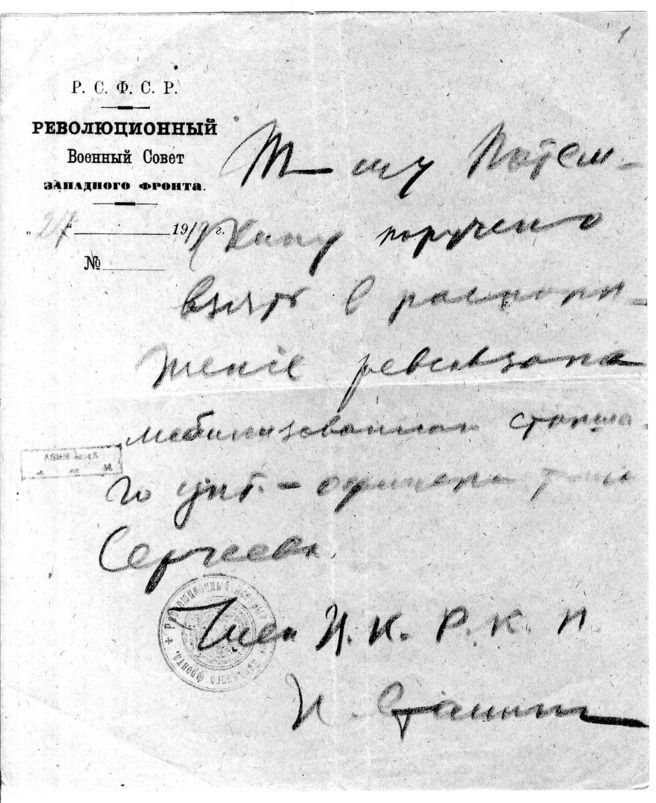 1
Р. С. Ф. С. Р.
РЕВОЛЮЦИОННЫЙ
Военный Совет
ЗАПАДНОГО ФРОНТА.
„27“ 1919 г.
№
Т–щу Потем–
кину поручено
взять в распоря–
жение
мобилизованного старше–
го унт.–офицера т–ща
Сергеева.
Член Ц. К. Р. К. П.
И. Сталин